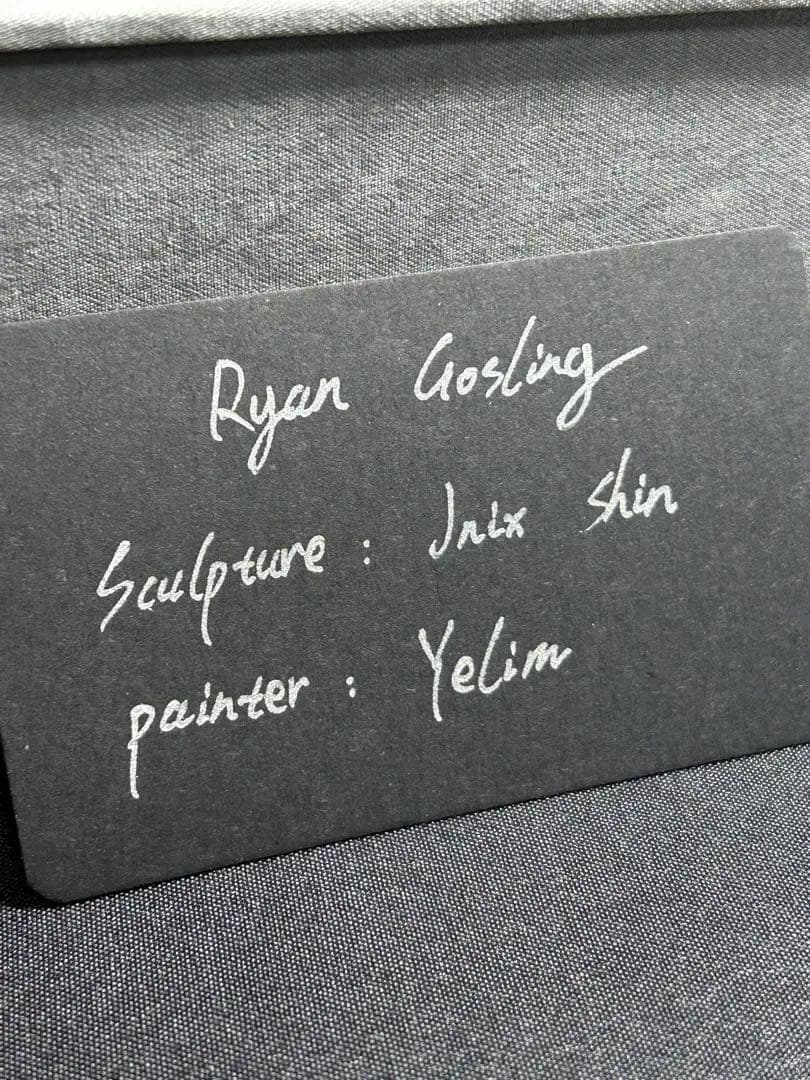 Ryan Gosling
Sculpture : Jnix Shin
painter : Yelim